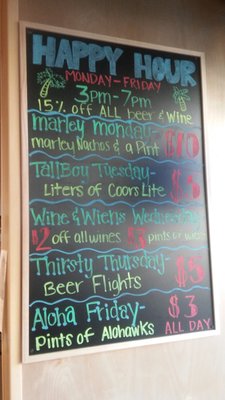 HAPPY HOUR
MONDAY-FRIDAY
3pm-7pm
15% off ALL beer & Wine
marley monday-
marley Nachos & a Pint $10
TallBoy Tuesday-
Liters of Coors Lite $5
Wine & Wiens Wednesday
$2 off all wines $3 pints or
Thirsty Thursday-
Beer Flights $5
Aloha Friday- $3
pints of Alohawks ALL DAY